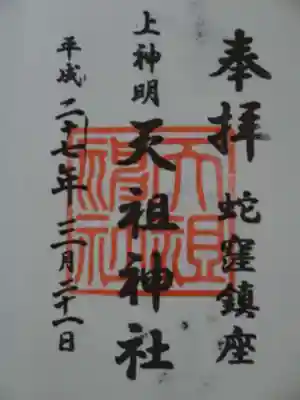 奉拝 蛇窪鎮座
上神明 天祖神社
平成二十七年三月二十一日
天祖
神社